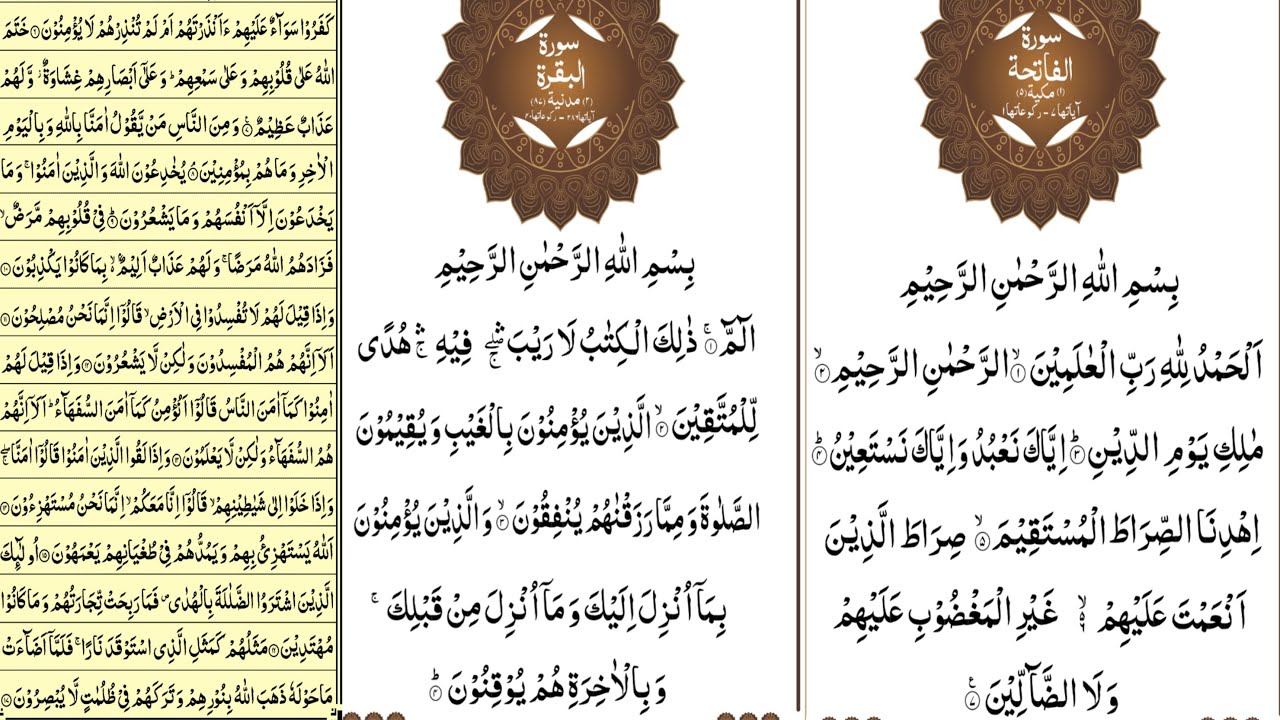 سورة
الفاتحة
(۱) مكية (۵)
آیاتها ۷ - ركوعاتها ۱
بِسْمِ اللّٰهِ الرَّحْمٰنِ الرَّحِيْمِ
اَلْحَمْدُ لِلّٰهِ رَبِّ الْعٰلَمِيْنَ ۙ‏﴿۱﴾ الرَّحْمٰنِ الرَّحِيْمِ ۙ‏﴿۲﴾
مٰلِكِ يَوْمِ الدِّيْنِ ؕ‏﴿۳﴾ اِيَّاكَ نَعْبُدُ وَاِيَّاكَ نَسْتَعِيْنُ ؕ‏﴿۴﴾
اِهْدِنَا الصِّرَاطَ الْمُسْتَقِيْمَ ۙ‏﴿۵﴾ صِرَاطَ الَّذِيْنَ
اَنْعَمْتَ عَلَيْهِمْ ۙ۬‏﴿۶﴾ غَيْرِ الْمَغْضُوْبِ عَلَيْهِمْ
وَلَا الضَّآلِّيْنَ ‏﴿۷﴾
سورة
البقرة
(۲) مدنية (۸۷)
آیاتها ۲۸۶ - ركوعاتها ۴۰
بِسْمِ اللّٰهِ الرَّحْمٰنِ الرَّحِيْمِ
الٓمّٓ ۚ‏﴿۱﴾ ذٰلِكَ الْكِتٰبُ لَا رَيْبَ ۛۖۚ فِيْهِ ۛۚ هُدًى
لِّلْمُتَّقِيْنَ ۙ‏﴿۲﴾ الَّذِيْنَ يُؤْمِنُوْنَ بِالْغَيْبِ وَيُقِيْمُوْنَ
الصَّلٰوةَ وَمِمَّا رَزَقْنٰهُمْ يُنْفِقُوْنَ ۙ‏﴿۳﴾ وَالَّذِيْنَ يُؤْمِنُوْنَ
بِمَآ اُنْزِلَ اِلَيْكَ وَمَآ اُنْزِلَ مِنْ قَبْلِكَ ۚ
وَبِالْاٰخِرَةِ هُمْ يُوْقِنُوْنَ ؕ‏﴿۴﴾
كَفَرُوْا سَوَآءٌ عَلَيْهِمْ ءَاَنْذَرْتَهُمْ اَمْ لَمْ تُنْذِرْهُمْ لَا يُؤْمِنُوْنَ ‏﴿۶﴾ خَتَمَ
اللّٰهُ عَلٰى قُلُوْبِهِمْ وَعَلٰى سَمْعِهِمْ ؕ وَعَلٰٓى اَبْصَارِهِمْ غِشَاوَةٌ ؗ وَّلَهُمْ
عَذَابٌ عَظِيْمٌ ‏﴿۷﴾ وَمِنَ النَّاسِ مَنْ يَّقُوْلُ اٰمَنَّا بِاللّٰهِ وَبِالْيَوْمِ
الْاٰخِرِ وَمَا هُمْ بِمُؤْمِنِيْنَ ۘ‏﴿۸﴾ يُخٰدِعُوْنَ اللّٰهَ وَالَّذِيْنَ اٰمَنُوْا ۚ وَمَا
يَخْدَعُوْنَ اِلَّآ اَنْفُسَهُمْ وَمَا يَشْعُرُوْنَ ؕ‏﴿۹﴾ فِيْ قُلُوْبِهِمْ مَّرَضٌ ۙ
فَزَادَهُمُ اللّٰهُ مَرَضًا ۚ وَلَهُمْ عَذَابٌ اَلِيْمٌۢ ۙ بِمَا كَانُوْا يَكْذِبُوْنَ ‏﴿۱۰﴾
وَاِذَا قِيْلَ لَهُمْ لَا تُفْسِدُوْا فِي الْاَرْضِ ۙ قَالُوْٓا اِنَّمَا نَحْنُ مُصْلِحُوْنَ ‏﴿۱۱﴾
اَلَآ اِنَّهُمْ هُمُ الْمُفْسِدُوْنَ وَلٰكِنْ لَّا يَشْعُرُوْنَ ‏﴿۱۲﴾ وَاِذَا قِيْلَ لَهُمْ
اٰمِنُوْا كَمَآ اٰمَنَ النَّاسُ قَالُوْٓا اَنُؤْمِنُ كَمَآ اٰمَنَ السُّفَهَآءُ ؕ اَلَآ اِنَّهُمْ
هُمُ السُّفَهَآءُ وَلٰكِنْ لَّا يَعْلَمُوْنَ ‏﴿۱۳﴾ وَاِذَا لَقُوا الَّذِيْنَ اٰمَنُوْا قَالُوْٓا اٰمَنَّا ۖۚ
وَاِذَا خَلَوْا اِلٰى شَيٰطِيْنِهِمْ ۙ قَالُوْٓا اِنَّا مَعَكُمْ ۙ اِنَّمَا نَحْنُ مُسْتَهْزِءُوْنَ ‏﴿۱۴﴾
اَللّٰهُ يَسْتَهْزِئُ بِهِمْ وَيَمُدُّهُمْ فِيْ طُغْيَانِهِمْ يَعْمَهُوْنَ ‏﴿۱۵﴾ اُولٰٓئِكَ
الَّذِيْنَ اشْتَرَوُا الضَّلٰلَةَ بِالْهُدٰى ۪ فَمَا رَبِحَتْ تِّجَارَتُهُمْ وَمَا كَانُوْا
مُهْتَدِيْنَ ‏﴿۱۶﴾ مَثَلُهُمْ كَمَثَلِ الَّذِي اسْتَوْقَدَ نَارًا ۚ فَلَمَّآ اَضَآءَتْ
مَا حَوْلَهٗ ذَهَبَ اللّٰهُ بِنُوْرِهِمْ وَتَرَكَهُمْ فِيْ ظُلُمٰتٍ لَّا يُبْصِرُوْنَ ‏﴿۱۷﴾